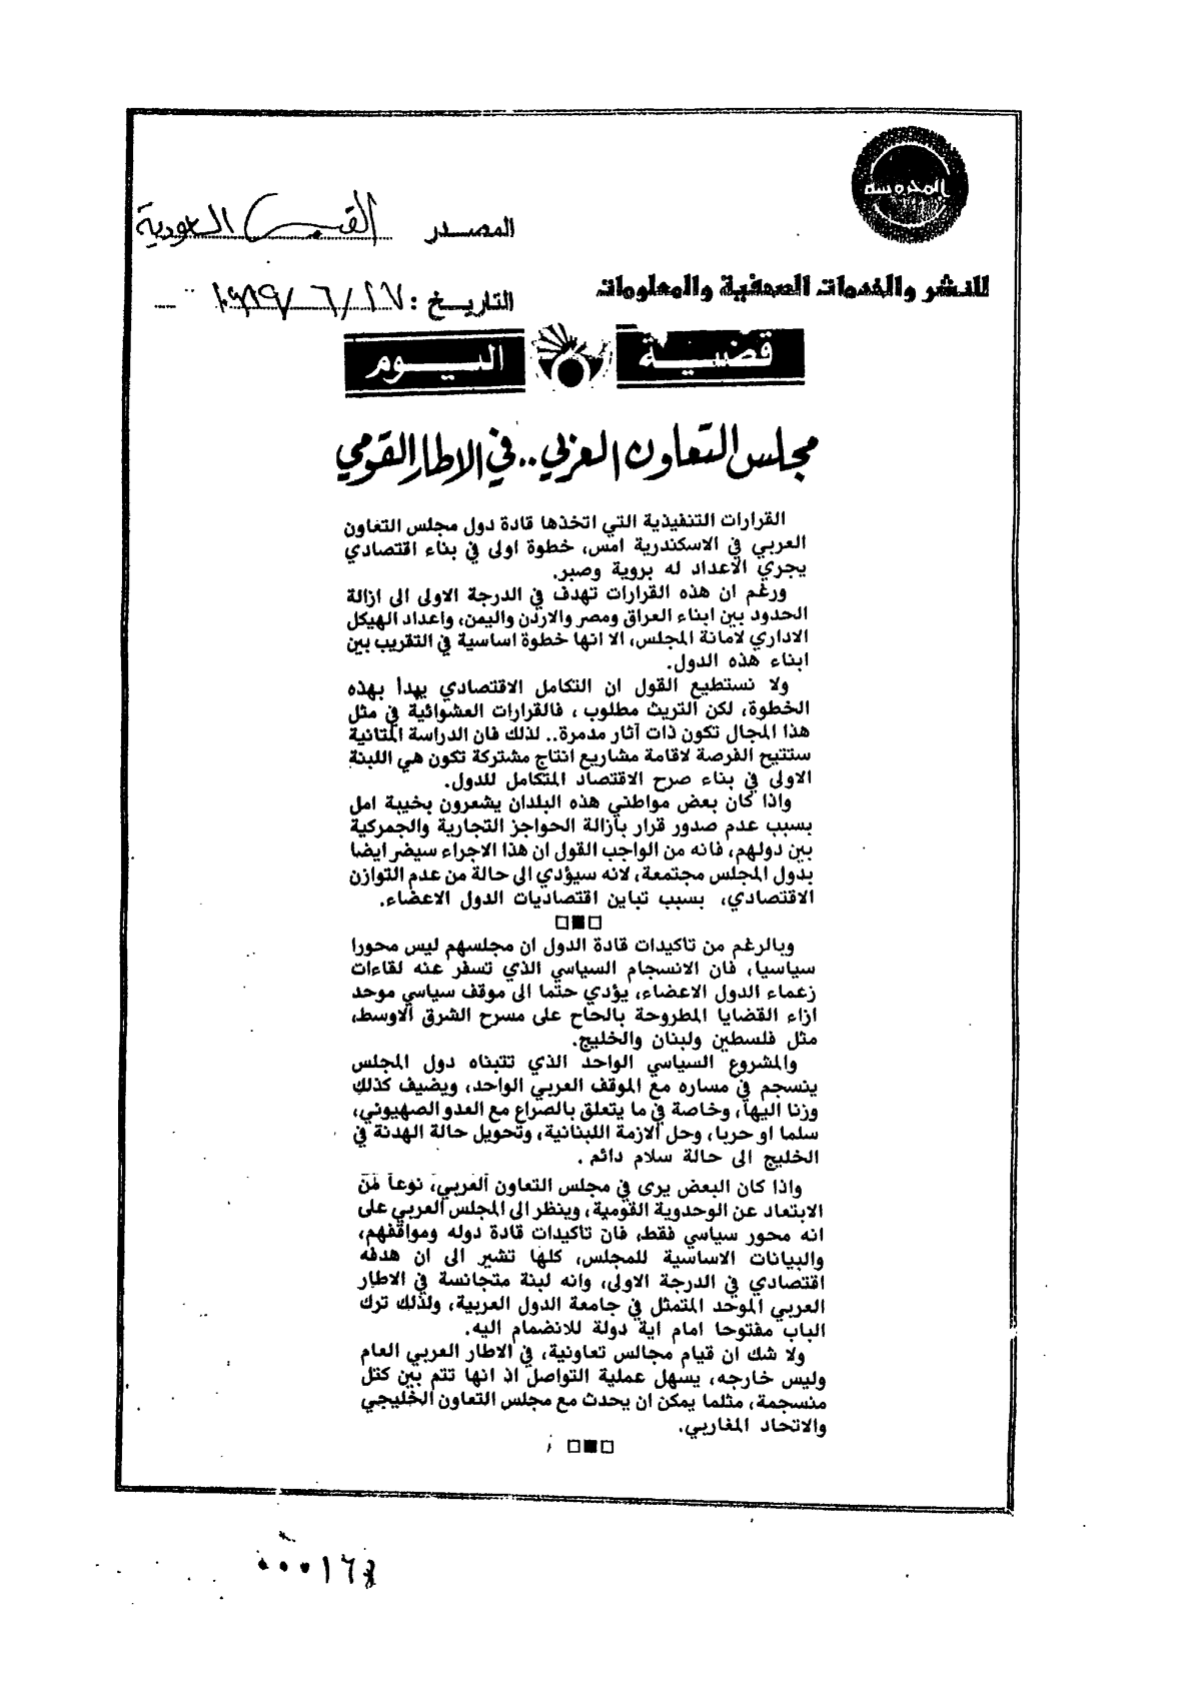 المحروسة
المصدر القبس السعودية
للنشر والخدمات الصحفية والمعلومات
التاريخ : ١٩٨٩/٦/١٧
قضية اليوم
مجلس التعاون العربي .. في الاطار القومي
القرارات التنفيذية التي اتخذها قادة دول مجلس التعاون
العربي في الاسكندرية امس، خطوة اولى في بناء اقتصادي
يجري الاعداد له بروية وصبر.
ورغم ان هذه القرارات تهدف في الدرجة الاولى الى ازالة
الحدود بين ابناء العراق ومصر والاردن واليمن، واعداد الهيكل
الاداري لامانة المجلس، الا انها خطوة اساسية في التقريب بين
ابناء هذه الدول.
ولا نستطيع القول ان التكامل الاقتصادي يبدأ بهذه
الخطوة، لكن التريث مطلوب ، فالقرارات العشوائية في مثل
هذا المجال تكون ذات آثار مدمرة.. لذلك فان الدراسة المتانية
ستتيح الفرصة لاقامة مشاريع انتاج مشتركة تكون هي اللبنة
الاولى في بناء صرح الاقتصاد المتكامل للدول.
واذا كان بعض مواطني هذه البلدان يشعرون بخيبة امل
بسبب عدم صدور قرار بازالة الحواجز التجارية والجمركية
بين دولهم، فانه من الواجب القول ان هذا الاجراء سيضر ايضا
بدول المجلس مجتمعة، لانه سيؤدي الى حالة من عدم التوازن
الاقتصادي، بسبب تباين اقتصاديات الدول الاعضاء.
□■□
وبالرغم من تاكيدات قادة الدول ان مجلسهم ليس محورا
سياسيا، فان الانسجام السياسي الذي تسفر عنه لقاءات
زعماء الدول الاعضاء، يؤدي حتما الى موقف سياسي موحد
ازاء القضايا المطروحة بالحاح على مسرح الشرق الاوسط،
مثل فلسطين ولبنان والخليج.
والمشروع السياسي الواحد الذي تتبناه دول المجلس
ينسجم في مساره مع الموقف العربي الواحد، ويضيف كذلك
وزنا اليها، وخاصة في ما يتعلق بالصراع مع العدو الصهيوني،
سلما او حربا، وحل الازمة اللبنانية، وتحويل حالة الهدنة في
الخليج الى حالة سلام دائم .
واذا كان البعض يرى في مجلس التعاون العربي، نوعا من
الابتعاد عن الوحدوية القومية، وينظر الى المجلس العربي على
انه محور سياسي فقط، فان تاكيدات قادة دوله ومواقفهم،
والبيانات الاساسية للمجلس، كلها تشير الى ان هدفه
اقتصادي في الدرجة الاولى، وانه لبنة متجانسة في الاطار
العربي الموحد المتمثل في جامعة الدول العربية، ولذلك ترك
الباب مفتوحا امام اية دولة للانضمام اليه.
ولا شك ان قيام مجالس تعاونية، في الاطار العربي العام
وليس خارجه، يسهل عملية التواصل اذ انها تتم بين كتل
منسجمة، مثلما يمكن ان يحدث مع مجلس التعاون الخليجي
والاتحاد المغاربي.
□■□